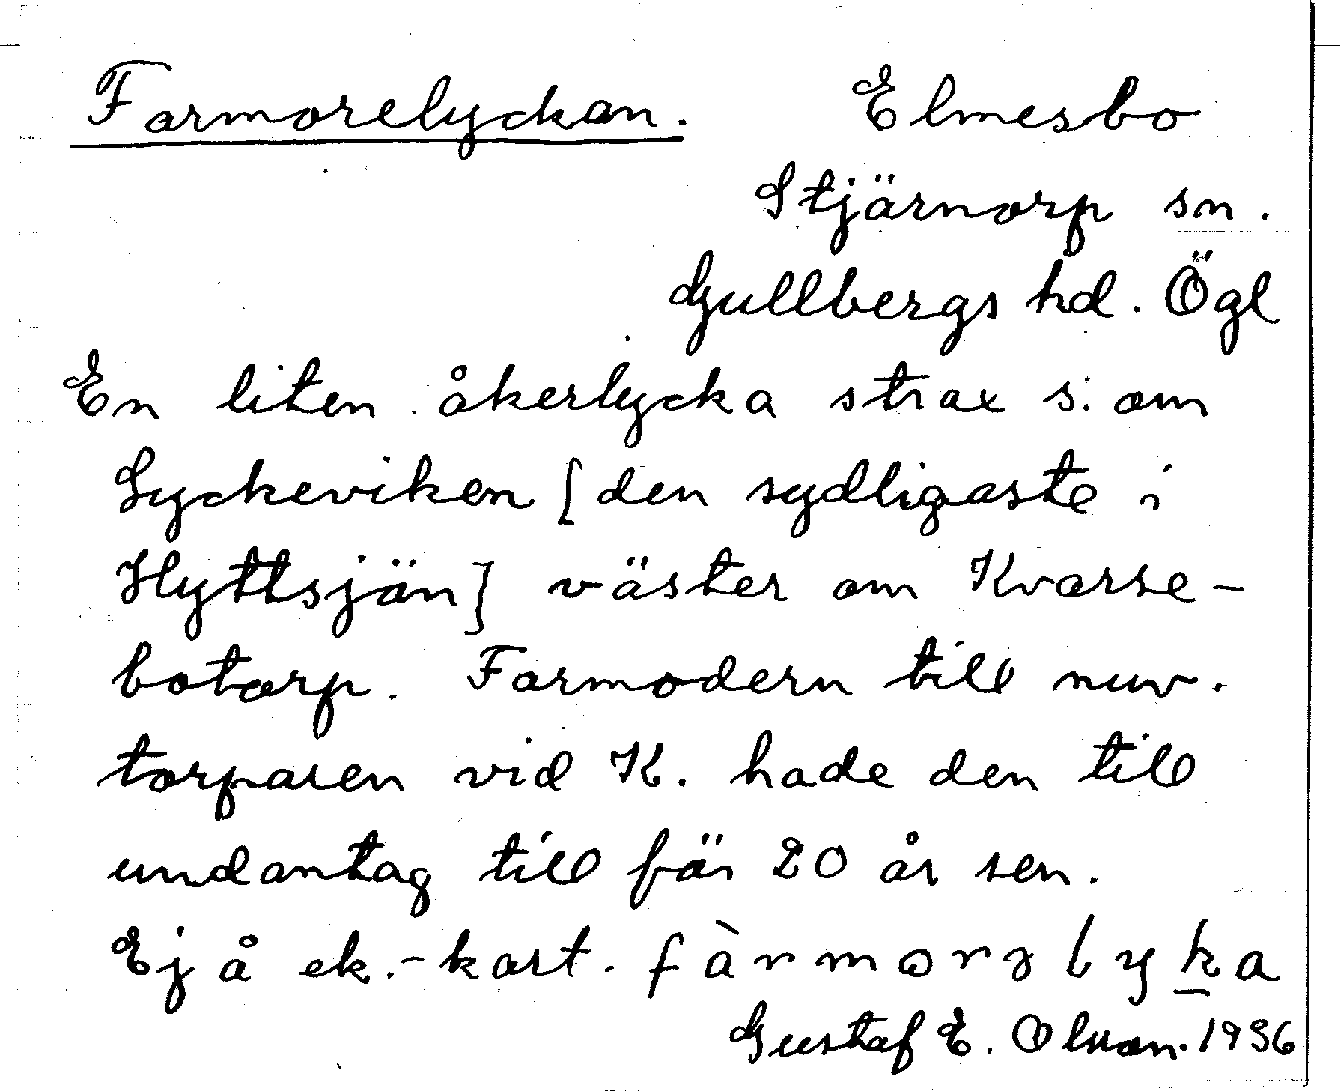 Farmorelyckan. Elmesbo
Stjärnorp sn.
Gullbergs hd. Ögl
En liten åkerlycka strax s. om
Lyckeviken [den sydligaste i
Hyttsjön] väster om Kvarse-
botorp. Farmodern till nuv.
torparen vid K. hade den till
undantag till för 20 år sen.
Ej å ek.-kart. fàrmorəlyka
Gustaf E. Olsson. 1936